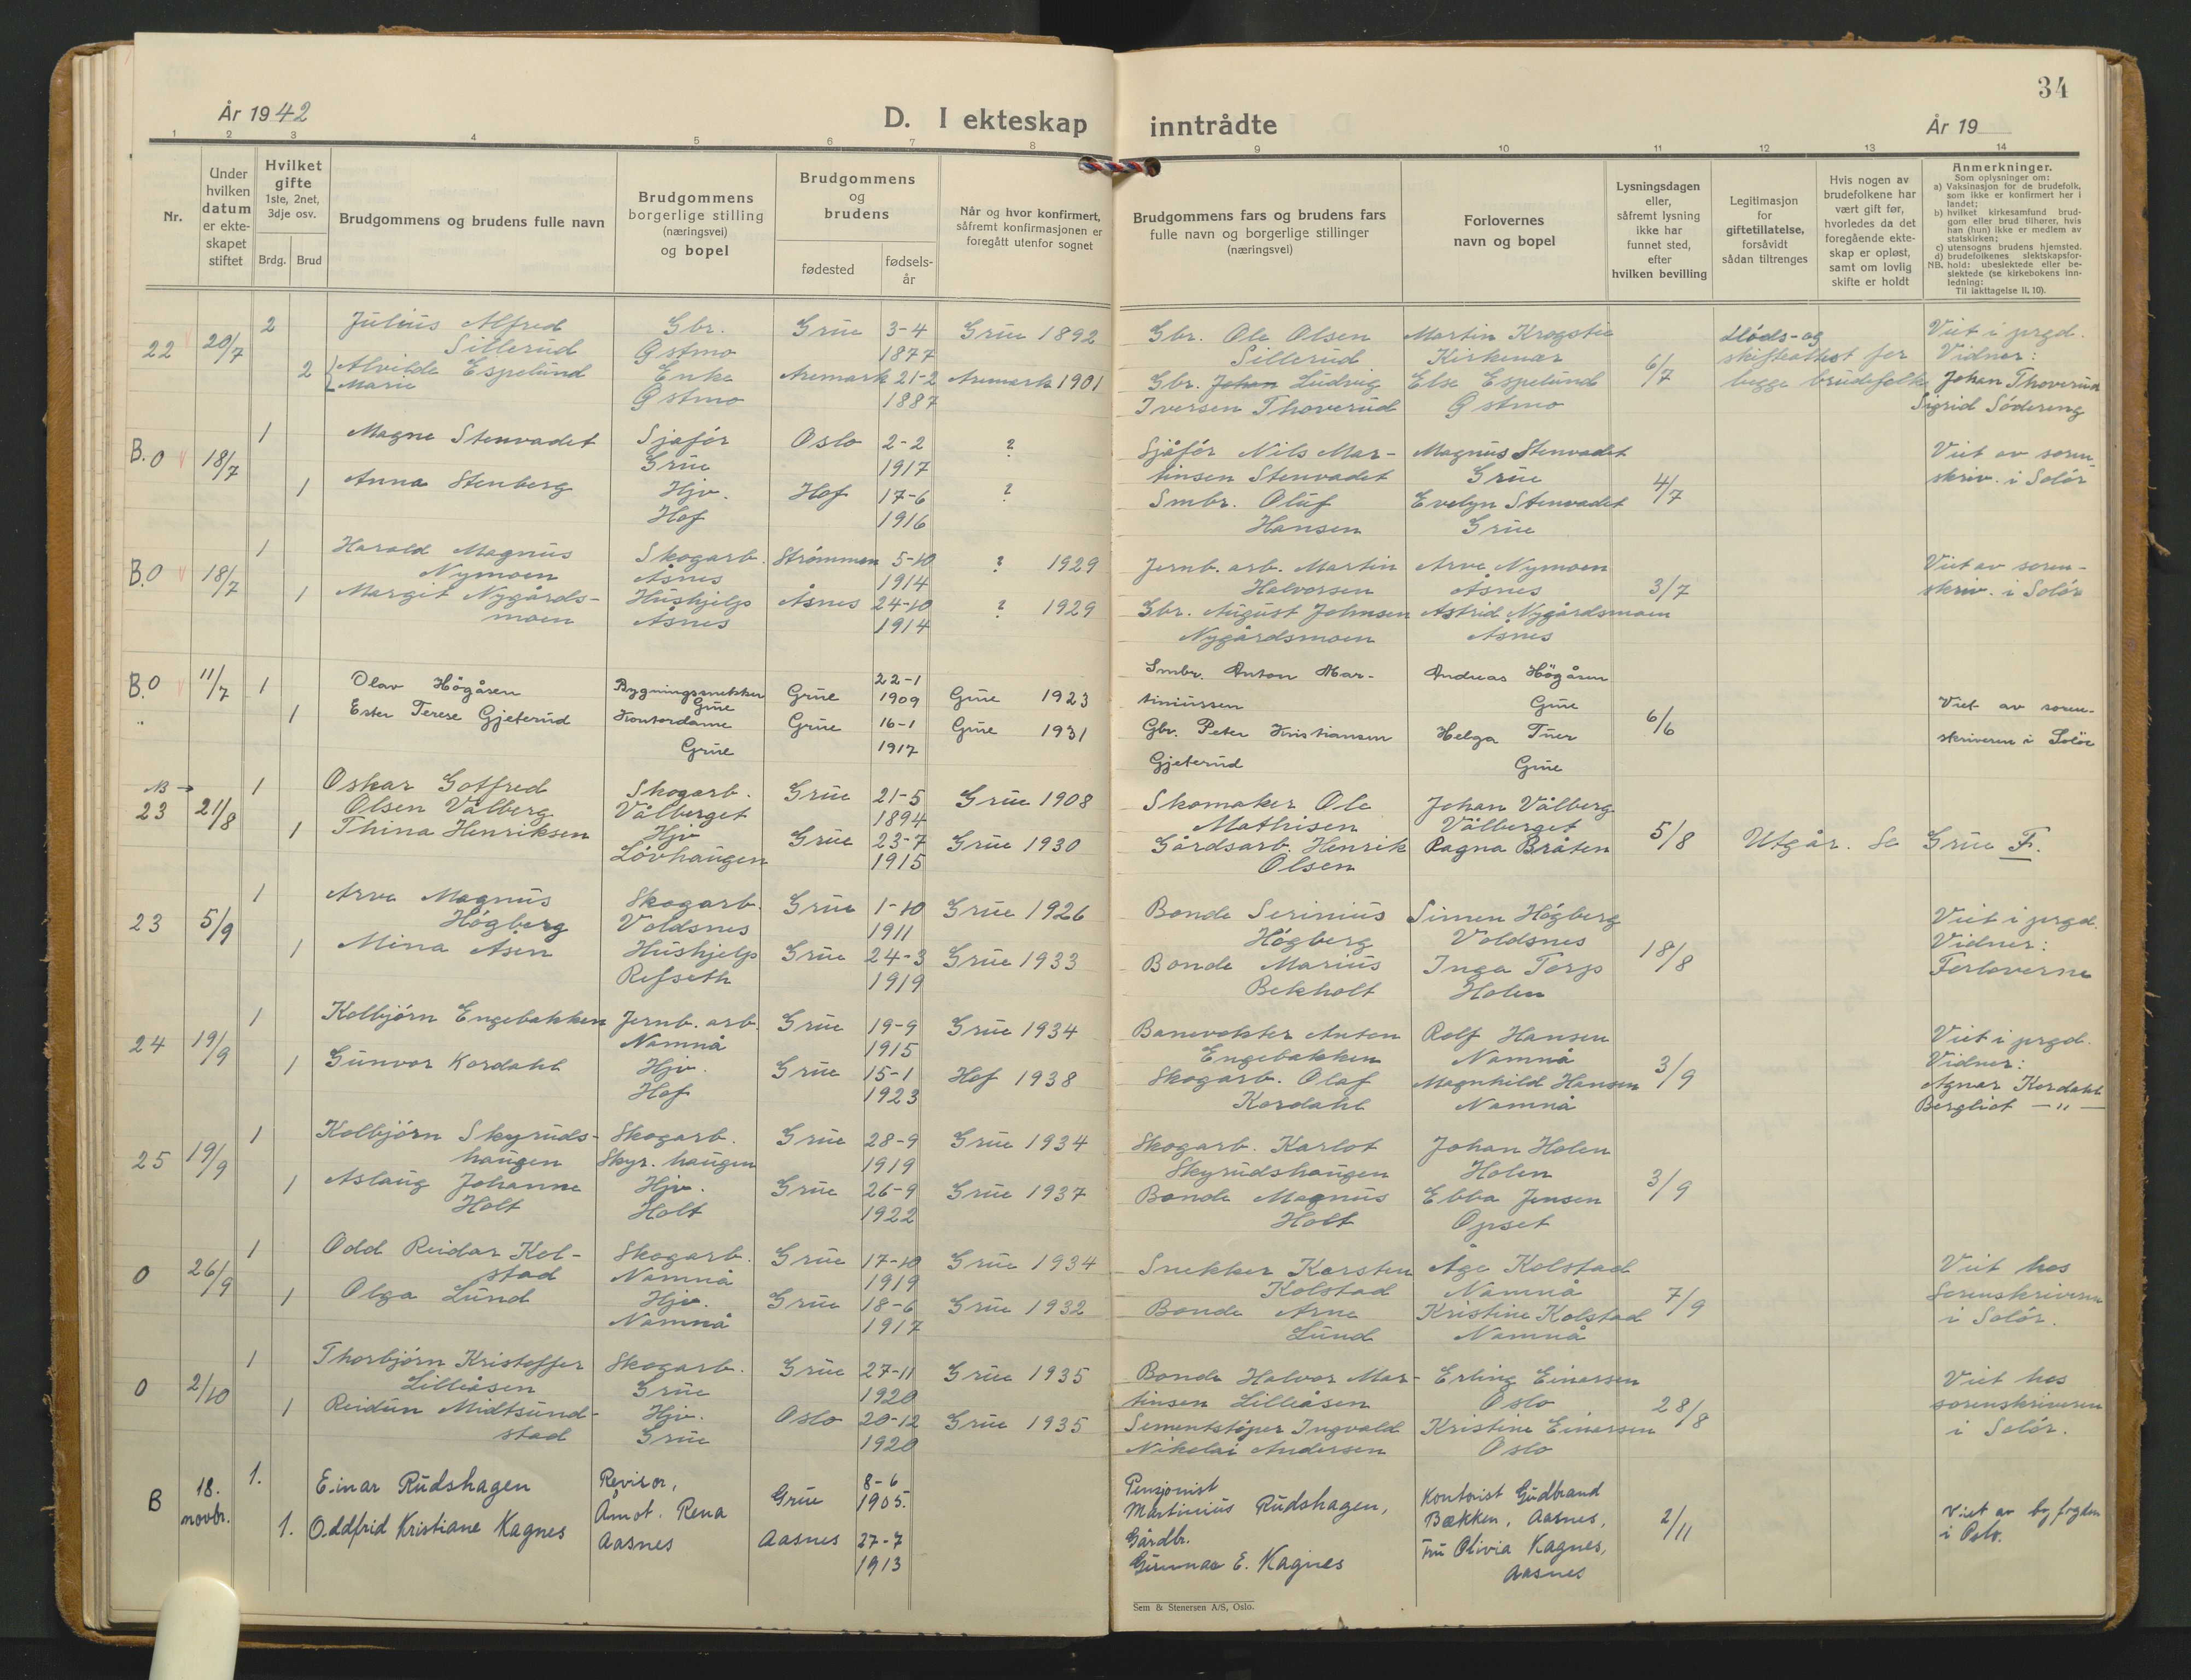 34
År 1942
D. I ekteskap inntrådte
År 19
1 2 3 4 5 6 7 8 9 10 11 12 13 14
Nr.
Under hvilken datum er ekteskapet stiftet
Hvilket gifte 1ste, 2net, 3dje osv.
Brdg. Brud
Brudgommens og brudens fulle navn
Brudgommens borgerlige stilling (næringsvei) og bopel
Brudgommens og brudens
fødested
fødsels-år
Når og hvor konfirmert, såfremt konfirmasjonen er foregått utenfor sognet
Brudgommens fars og brudens fars fulle navn og borgerlige stillinger (næringsvei)
Forlovernes navn og bopel
Lysningsdagen eller, såfremt lysning ikke har funnet sted, efter hvilken bevilling
Legitimasjon for giftetillatelse, forsåvidt sådan tiltrenges
Hvis nogen av brudefolkene har vært gift før, hvorledes da det foregående ekteskap er opløst, samt om lovlig skifte er holdt
Anmerkninger.
Som oplysninger om:
a) Vaksinasjon for de brudefolk, som ikke er konfirmert her i landet;
b) hvilket kirkesamfund brudgom eller brud tilhører, hvis han (hun) ikke er medlem av statskirken;
c) utensogns brudens hjemsted.
d) brudefolkenes slektskapsforhold: ubeslektede eller beslektede (se kirkebokens innledning:
NB.
Til Iakttagelse II, 10).
22 20/7 2 Julius Alfred Sillerud Gbr. Østmo Grue 3-4 1877 Grue 1892 Gbr. Ole Olsen Sillerud Martin Krogstie Kirkenær
2 Alvilde Marie Espelund Enke Østmo Aremark 21-2 1887 Aremark 1901 Gbr. Johan Ludvig Iversen Thoverud Else Espelund Østmo 6/7 Døds- og skifteattest for begge brudefolk Viet i prgd. Vidner: Johan Thoverud Sigrid Södereng
B.O 18/7 1 Magne Stenvadet Sjåför Grue Oslo 2-2 1917 ? Sjåför Nils Martinsen Stenvadet Magnus Stenvadet Grue
1 Anna Stenberg Hjv. Hof Hof 17-6 1916 ? Smbr. Oluf Hansen Evelyn Stenvadet Grue 4/7 Viet av sorenskriv. i Solör
B.O 18/7 1 Harald Magnus Nymoen Skogarb. Åsnes Strømmen 5-10 1914 ? 1929 Jernb. arb. Martin Halvorsen Arve Nymoen Åsnes
1 Margit Nygårdsmoen Hushjelp Åsnes Åsnes 24-10 1914 ? 1929 Gbr. August Johnsen Nygårdsmoen Astrid Nygårdsmoen Åsnes 3/7 Viet av sorenskriv. i Solör
B.O 11/7 1 Olav Högåsen Bygningssnekker Grue Grue 22-1 1909 Grue 1923 Smbr. Anton Martiniussen Andreas Högåsen Grue
" 1 Ester Terese Gjeterud Kontordame Grue Grue 16-1 1917 Grue 1931 Gbr. Peter Kristiansen Gjeterud Helga Tuer Grue 6/6 Viet av sorenskriveren i Solör
NB →
23 21/8 1 Oskar Gotfred Olsen Vålberg Skogarb. Vålberget Grue 21-5 1894 Grue 1908 Skomaker Ole Mathisen Johan Vålberg Vålberget
1 Thina Henriksen Hjv. Lövhaugen Grue 23-7 1915 Grue 1930 Gårdsarb. Henrik Olsen Ragna Bråten 5/8 Utgår. Se Grue F.
23 5/9 1 Arve Magnus Högberg Skogarb. Voldsnes Grue 1-10 1911 Grue 1926 Bonde Serinius Högberg Simen Högberg Voldsnes
1 Mina Åsen Hushjelp Refseth Grue 24-3 1919 Grue 1933 Bonde Marius Bekholt Inga Torp Holen 18/8 Viet i prgd. Vidner: Forloverne
24 19/9 1 Kolbjörn Engebakken Jernb. arb. Namnå Grue 19-9 1915 Grue 1934 Banevokter Anton Engebakken Rolf Hansen Namnå
1 Gunvor Kordahl Hjv. Hof Grue 15-1 1923 Hof 1938 Skogarb. Olaf Kordahl Magnhild Hansen Namnå 3/9 Viet i prgd. Vidner: Agnar Kordahl Bergliot — " —
25 19/9 1 Kolbjörn Skyrudshaugen Skogarb. Skyr. haugen Grue 28-9 1919 Grue 1934 Skogarb. Karlot Skyrudshaugen Johan Holen Holen
1 Aslaug Johanne Holt Hjv. Holt Grue 26-9 1922 Grue 1937 Bonde Magnus Holt Ebba Jensen Opset 3/9
O 26/9 1 Odd Reidar Kolstad Skogarb. Namnå Grue 17-10 1919 Grue 1934 Snekker Karsten Kolstad Åge Kolstad Namnå
1 Olga Lund Hjv. Namnå Grue 18-6 1917 Grue 1932 Bonde Arne Lund Kristine Kolstad Namnå 7/9 Viet hos Sorenskriveren i Solör.
O 2/10 1 Thorbjörn Kristoffer Lilleåsen Skogarb. Grue Grue 27-11 1920 Grue 1935 Bonde Halvor Martinsen Lilleåsen Erling Einarsen Oslo
1 Reidun Midtsundstad Hjv. Grue Oslo 20-12 1920 Grue 1935 Sementstöper Ingvald Nikolai Andersen Kristine Einarsen Oslo 28/8 Viet hos sorenskriveren i Solör.
B 18. novbr. 1. Einar Rudshagen Revisor, Åmot. Rena Grue 8-6 1905. Pensjonist Martinius Rudshagen, Kontorist Gudbrand Bækken, Aasnes,
1. Oddfrid Kristiane Kagnes Aasnes Aasnes 27-7 1913 Gårdbr. Gunnar E. Kagnes Fru Olivia Kagnes, Aasnes 2/11 Viet av byfogden i Oslo.
Sem & Stenersen A/S, Oslo.